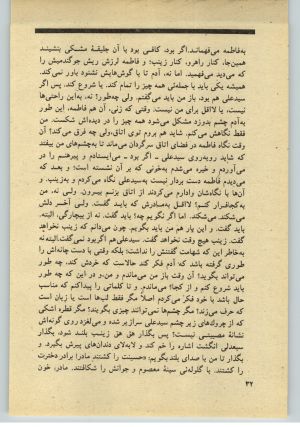 به‌فاطمه می‌فهماند. اگر بود، کافی بود با آن جلیقهٔ مشکی بنشیند
همین‌جا، کنار راهرو، کنار زینب؛ و فاطمه لرزش ریش جوگندمیش را
که می‌دید می‌فهمید. اما نه، آدم تا با گوشهایش نشنود باور نمی‌کند.
همیشه یکی باید با جمله‌یی همه چیز را تمام کند. یا شروع کند. پس اگر
سیدعلی هم بود، باز من باید می‌گفتم. ولی چه‌طور؟ نه، به‌این راحتی‌ها
نیست. یا لااقل برای من نیست. وقتی که زنی، آن هم فاطمه، این طور
به‌آدم چشم بدوزد مشکل می‌شود همه چیز را در دیده‌اش شکست. من
فقط نگاهش می‌کنم. شاید هم بروم توی اتاق، ولی چه فرق می‌کند؟ آن
وقت نگاه فاطمه در فضای اتاق سرگردان می‌ماند تا به‌چشم‌های من بیفتد
که شاید روبه‌روی سیدعلی ـ اگر بود ـ می‌ایستادم و پیرهنم را در
می‌آوردم و خیره می‌شدم به‌خونی که بر آن نشسته است؛ و بعد که
می‌دیدم فاطمه دست بردار نیست به‌سیدعلی نگاه می‌کردم و به‌زینب. و
آن‌ها با نگاه‌شان وادارم می‌کردند از اتاق بزنم بیرون. ولی نه، من
به‌کجا فرار کنم؟ لااقل به‌مادرش که باید گفت. ولی آخر دلش
می‌شکند. می‌شکند. اما اگر نگویم چه؟ باید گفت. نه از بیچارگی، البته.
باید گفت. و این بار هم من باید بگویم. چون می‌دانم که زینب نخواهد
گفت. زینب هیچ وقت نخواهد گفت. سیدعلی هم اگر بود نمی‌گفت. البته نه
به‌خاطر این که شهامت گفتنش را نداشت؛ بلکه وقتی با دست چانه‌اش را
طوری گرفته باشد که آدم فکر کند حالاست که خردش کند، چه طور
می‌تواند بگوید؟ آن وقت باز من می‌ماندم و من، و در این که چه طور
باید شروع کنم و از کجا؟ می‌ماندم. و تا کلماتی را پیدا کنم که مناسب
حال باشد با خود فکر می‌کردم اصلاً مگر فقط لب‌ها است یا زبان است
که حرف می‌زند؟ مگر چشم‌ها نمی‌توانند چیزی بگویند؟ مگر قطره اشکی
که از چروک‌های زیر چشم سیدعلی سرازیر شده و می‌لغزد روی گونه‌اش
نشانهٔ مصیبتی نیست؟ پس بگذار هق هق زینب بلند شود، بگذار
سیدعلی انگشت اشاره را خم کند و لابه‌لای دندان‌های پیش بگیرد. و
بگذار تا من با صدای بلند بگویم: «مصیبت را کشتند مادر! برادر دخترت
را کشتند. با گلوله‌یی سینهٔ معصوم و جوانش را شکافتند. مادر، خون
۳۲